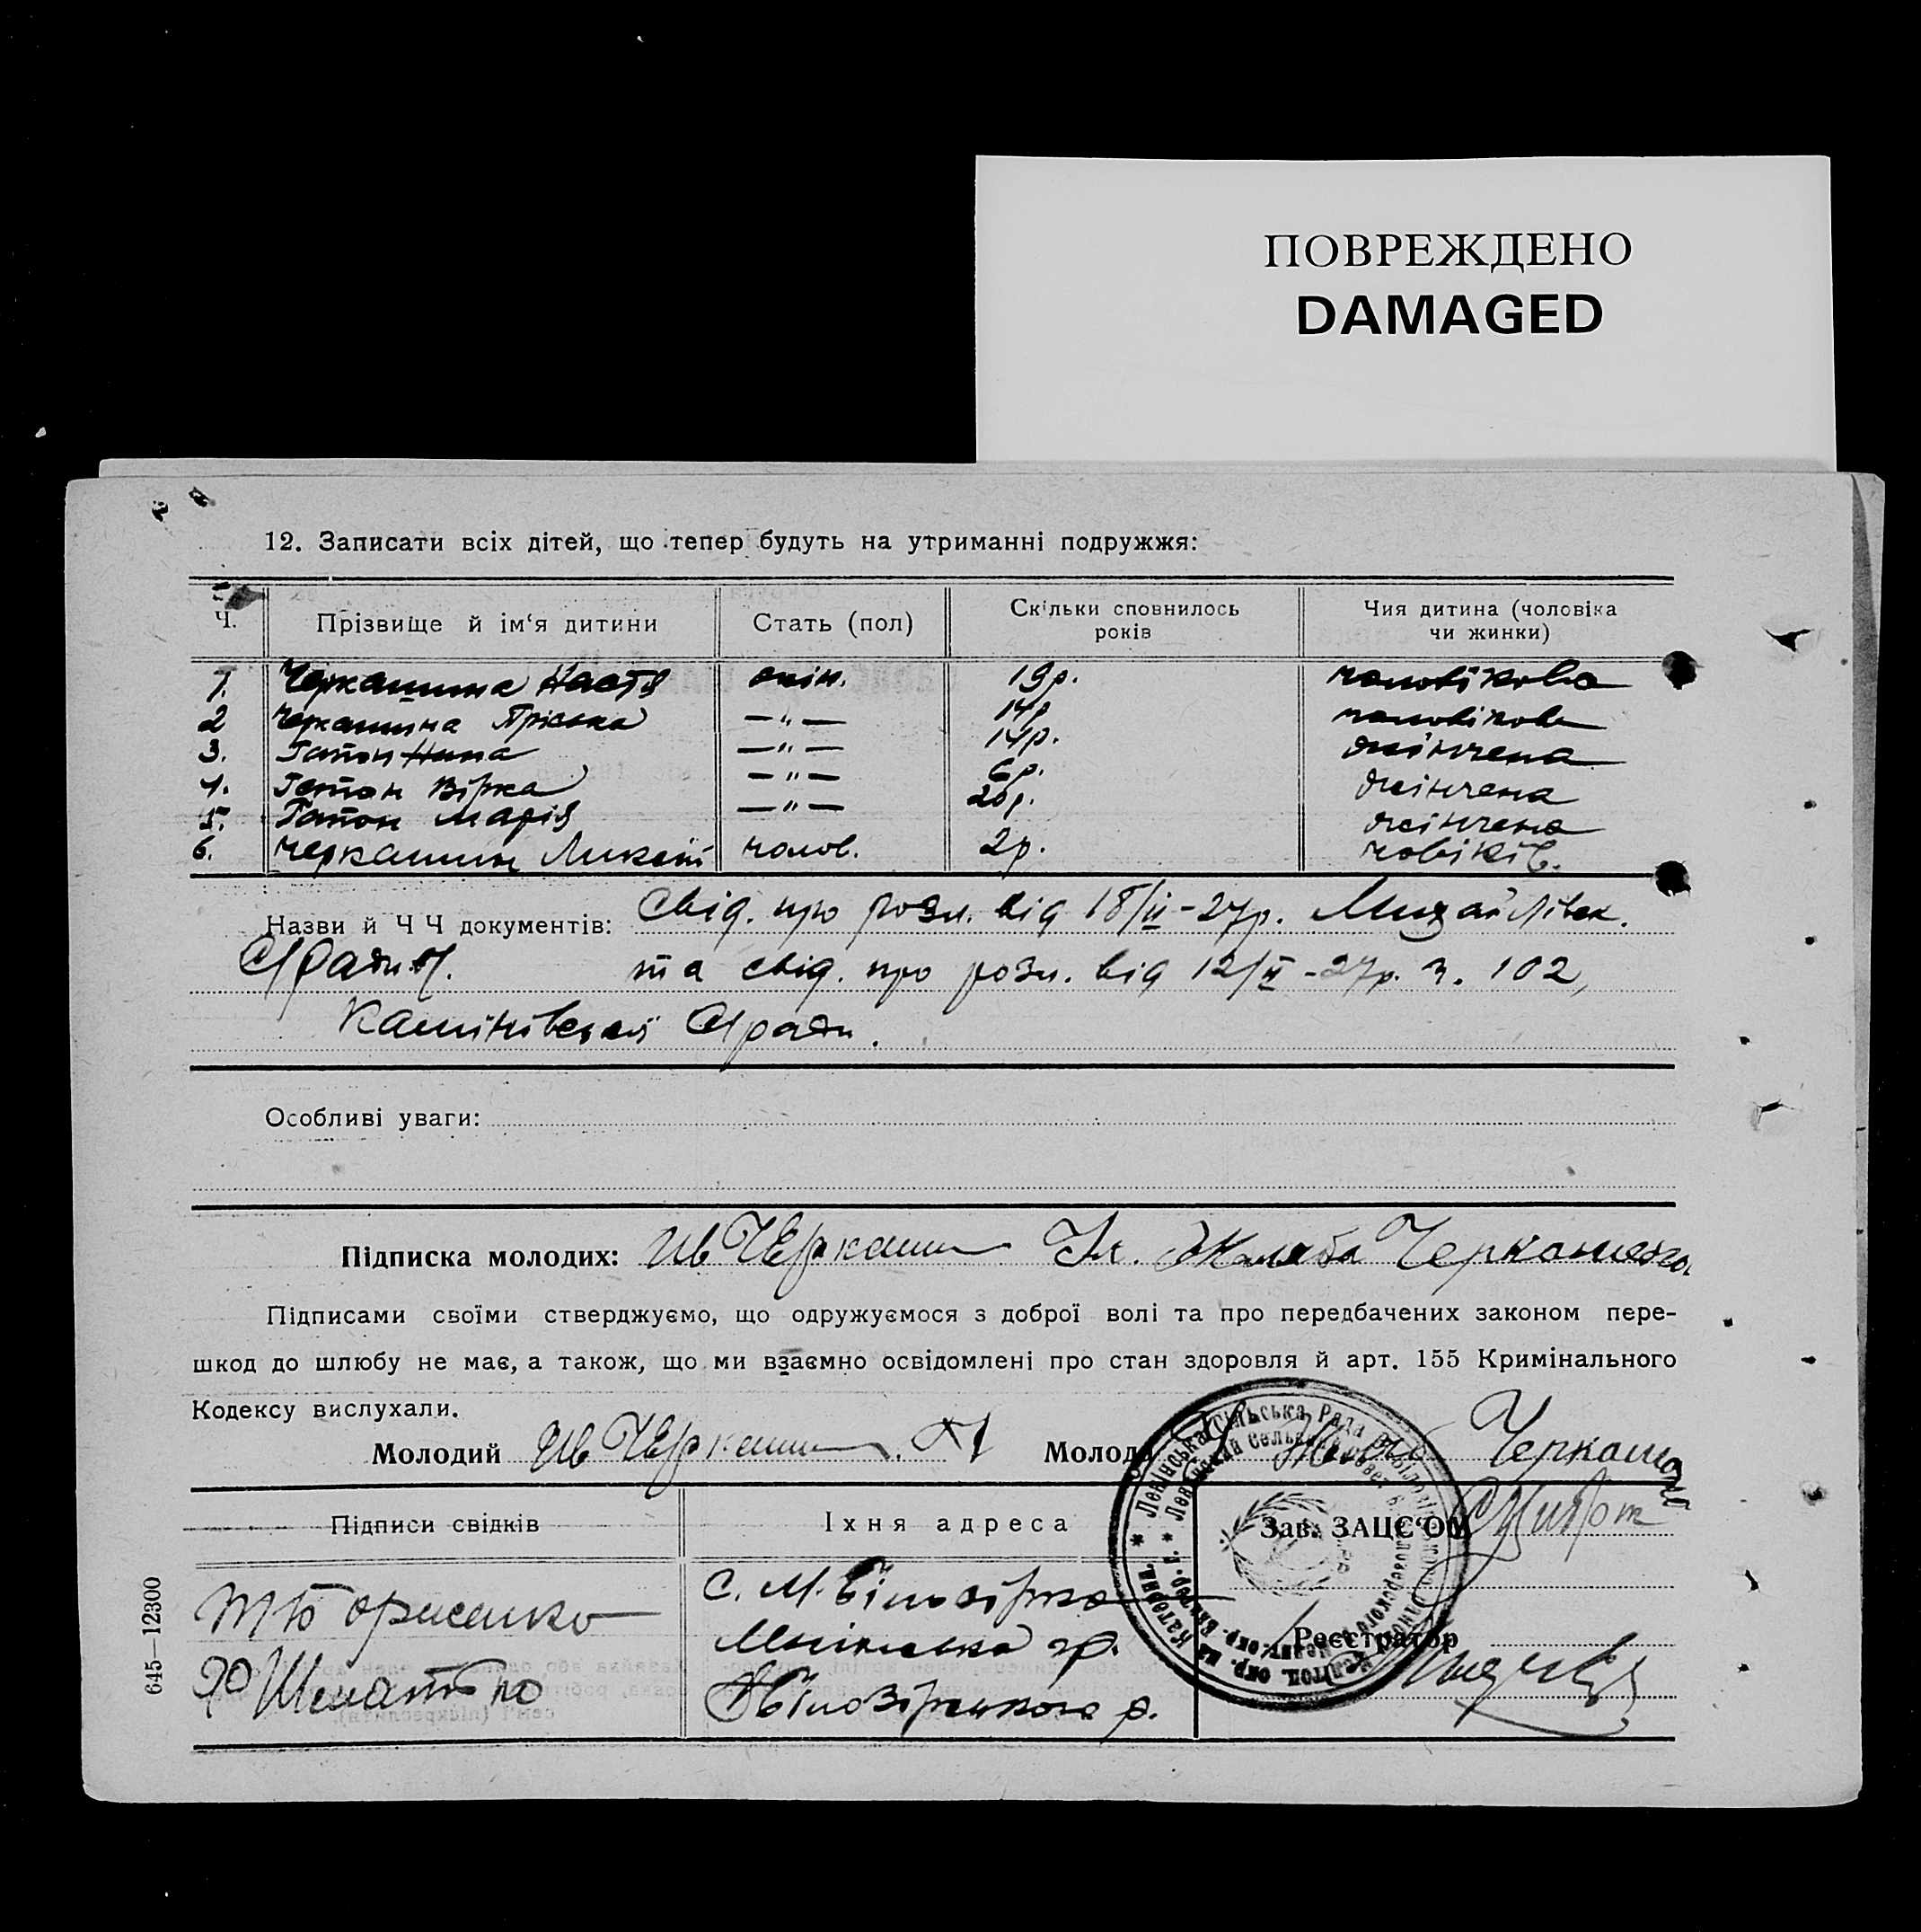 ПОВРЕЖДЕНО
DAMAGED
12. Записати всіх дітей, що тепер будуть на утриманні подружжя:
Ч. Прізвище й ім‘я дитини Стать (пол) Скільки сповнилось років Чия дитина (чоловіка чи жинки)
1. Черкашина Настя жін. 19р. чоловікова
2 Черкашина Пріська —„— 14р чоловікова
3. Гапон Нина —„— 14р. жінчена
4. Гапон Вірка —„— 6р. жінчена
5. Гапон Марія —„— 20р. жінчена
6. Черкашин Микит чолов. 2р.
Назви й Ч Ч документів: Свід. про розл. від 18/II-27р. Михайлівск.
С/Ради
та свід. про розл. від 12/II-27р. ч. 102,
С/ради.
Особливі уваги:
Підписка молодих: Ив Черкашин Черкашена
Підписами своїми стверджуємо, що одружуємося з доброї волі та про передбачених законом пере-
шкод до шлюбу не має, а також, що ми взаємно освідомлені про стан здоровля й арт. 155 Кримінального
Кодексу вислухали.
Молодий Ив Черкашин Молода Черкашена
Підписи свідків Їхня адреса Зав. ЗАЦС‘ОМ
Борисенко с. М. Білозірка
р.
Реєстратор
Білозірського р.
Ленінська Сільська Рада
645—12300